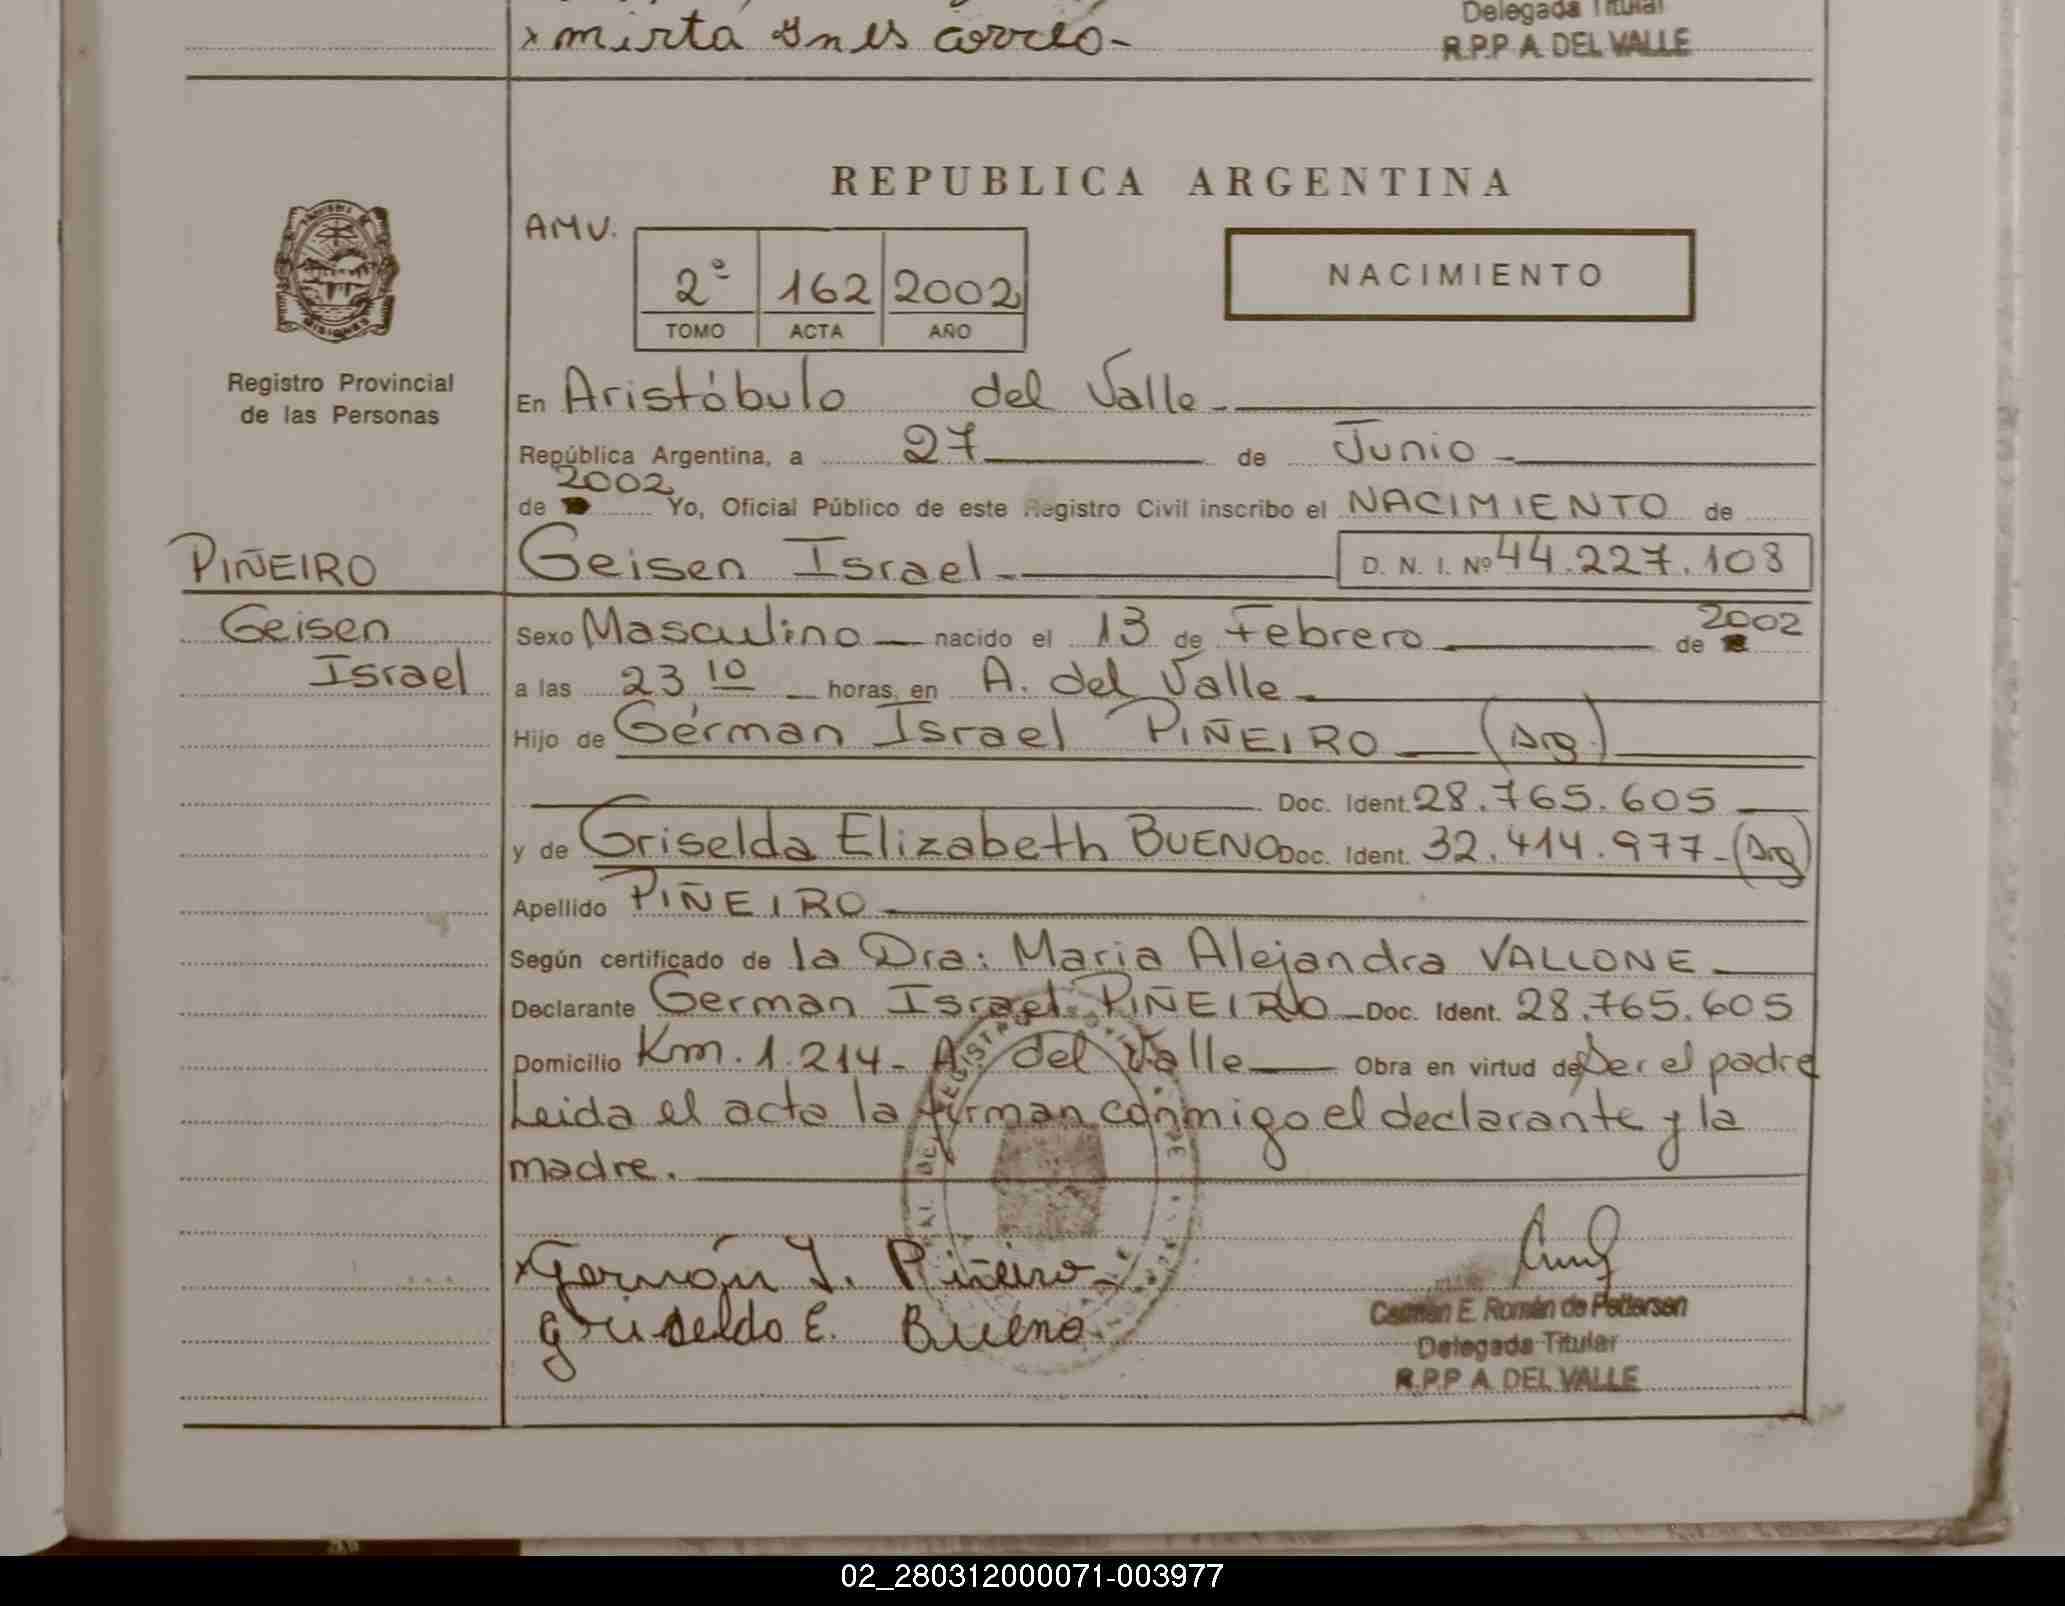 x mirta Ines correo-
Delegada Titular
R.P.P A. DEL VALLE
REPUBLICA ARGENTINA
AMV.
2º 162 2002
TOMO ACTA AÑO
NACIMIENTO
MISIONES
Registro Provincial
de las Personas
En Aristóbulo del Valle.-
República Argentina, a 27 de Junio -
2002
de Yo, Oficial Público de este Registro Civil inscribo el NACIMIENTO de
PIÑEIRO
Geisen Israel- D. N. I. Nº 44.227.108
Geisen
Israel
2002
Sexo Masculino - nacido el 13 de Febrero de
a las 23 10 - horas, en A. del Valle -
Hijo de Gérman Israel PIÑEIRO - (Arg.)
Doc. Ident. 28.765.605 -
y de Griselda Elizabeth BUENO Doc. Ident. 32.414.977-(Arg)
Apellido PIÑEIRO -
Según certificado de la Dra: Maria Alejandra VALLONE -
Declarante German Israel PIÑEIRO - Doc. Ident. 28.765.605
Domicilio Km. 1.214- A. del Valle - Obra en virtud de Ser el padre
Leida el acta la firman conmigo el declarante y la
madre.
x Germán I. Piñeiro
griselda E. Bueno.
Carmen E. Román de Pettersen
Delegada Titular
R.P.P A. DEL VALLE
02_280312000071-003977